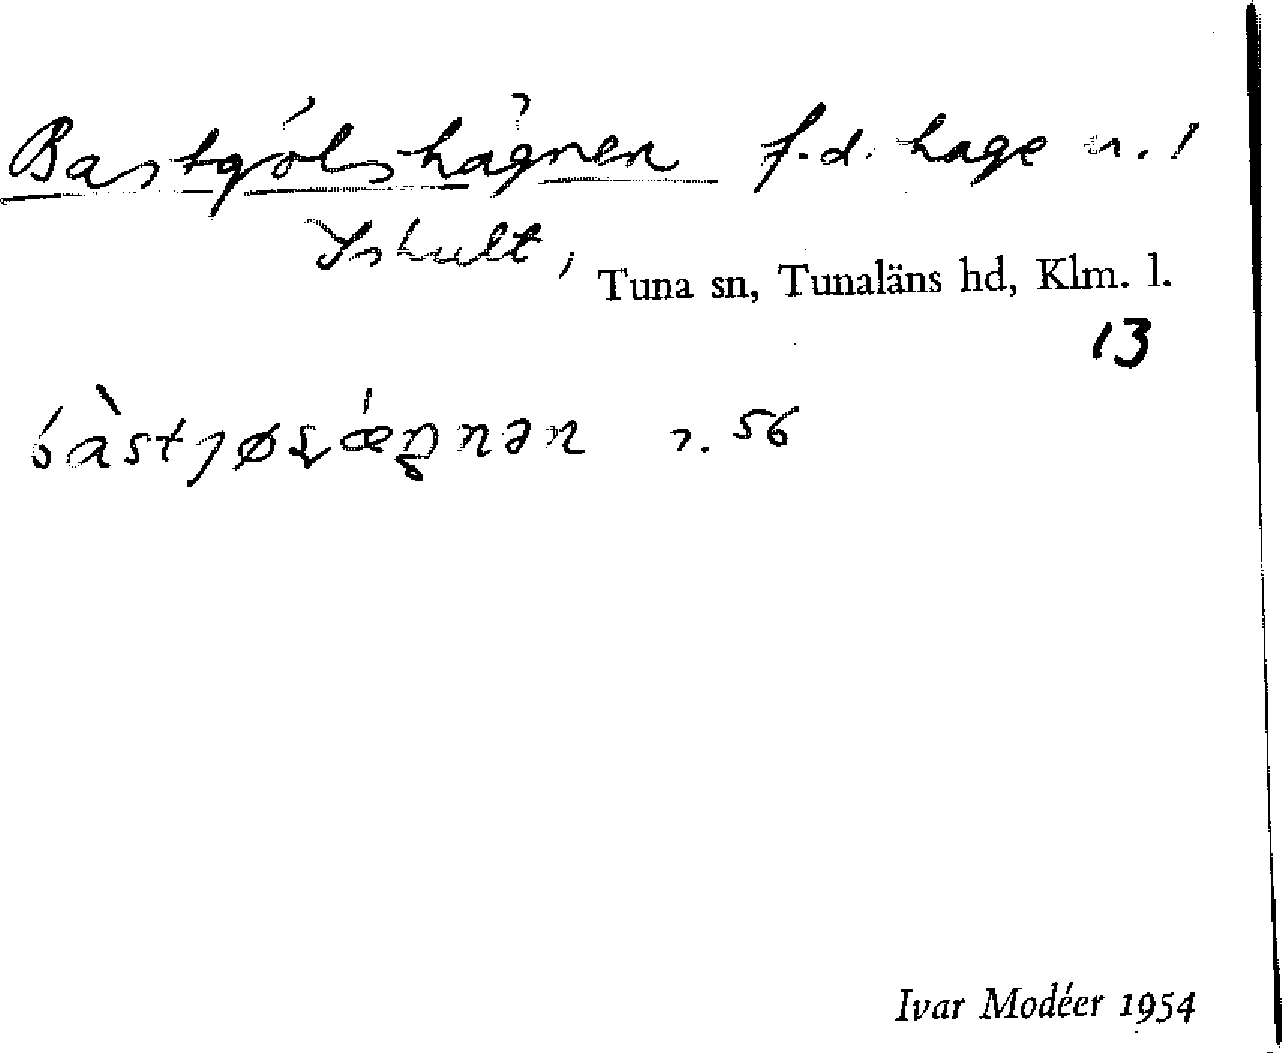 Bastgölshägnen f.d. hage n. 1
Ishult,
Tuna sn, Tunaläns hd, Klm. l.
13
56
Ivar Modéer 1954